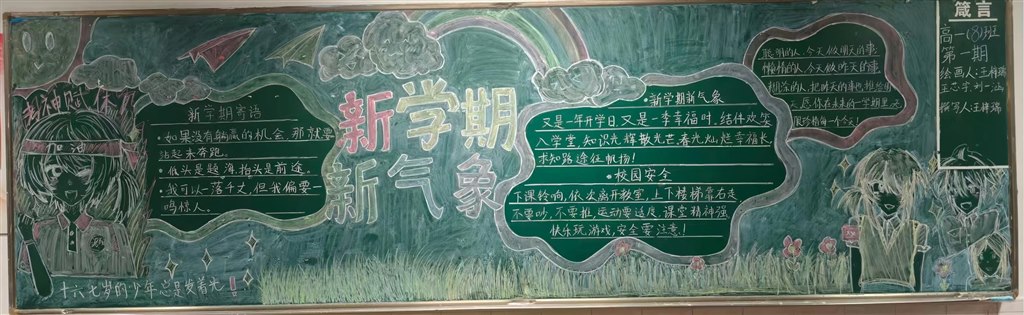 学神赋体！
加油
新学期寄语
• 如果没有躺赢的机会，那就要
站起来奔跑。
• 低头是题海，抬头是前途。
• 我可以一落千丈，但我偏要一
鸣惊人。
十六七岁的少年总是发着光！！
新学期
新气象
• 新学期新气象
又是一年开学日，又是一季幸福时，结伴欢笑
入学堂，知识光辉散光芒，春光灿烂幸福长，
求知路途任帆扬！
• 校园安全
下课铃响，依次离开教室，上下楼梯靠右走
不要吵，不要推，运动要适度，课堂精神强
快乐玩游戏，安全要注意！
聪明的人，今天做明天的事；
懒惰的人，今天做昨天的事
把昨天的事也推给明
天。愿你在未来的一学期里
珍惜每一个今天！
箴言
高一(8)班
第一期
绘画人：王梓瑞